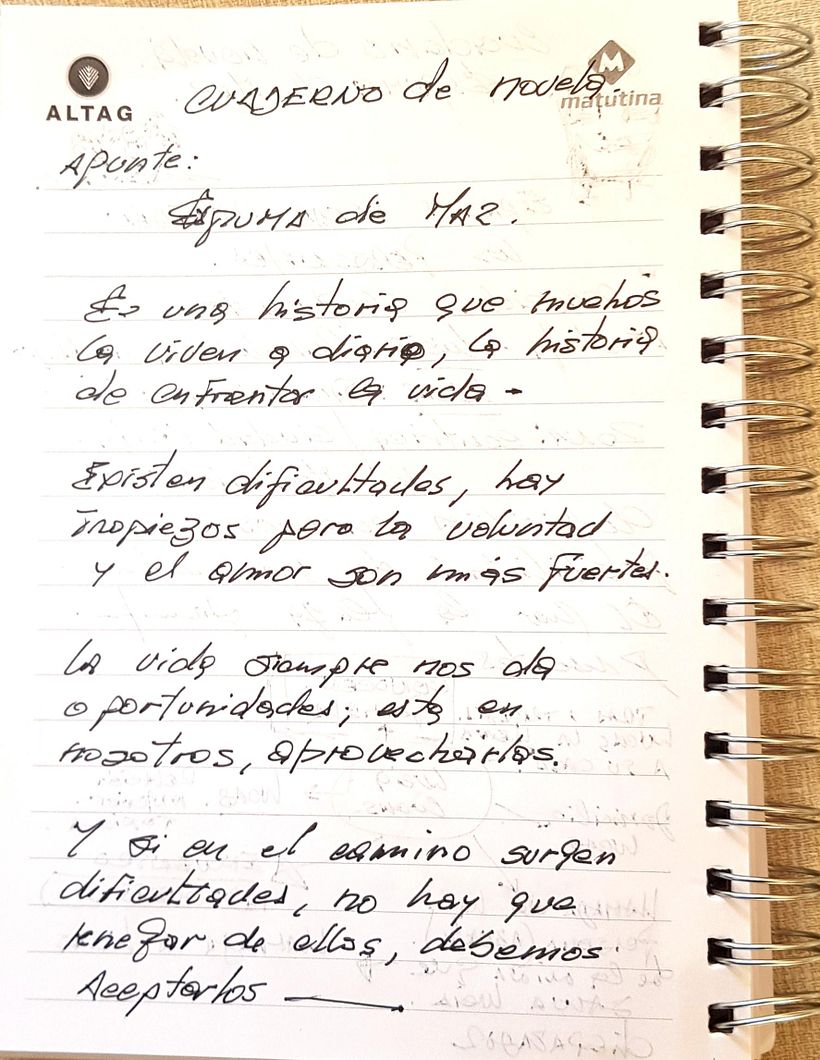 ALTAG
matutina
CUADERNO de novela.
Apunte:
Espuma de Mar.
Es una historia que muchos
la viven a diario, la historia
de enfrentar la vida -
Existen dificultades, hay
Tropiezos pero la voluntad
y el amor son más fuertes.
La vida siempre nos da
oportunidades; esta en
nosotros, aprovecharlas.
Y si en el camino surgen
dificultades, no hay que
renegar de ellos, debemos
Aceptarlos